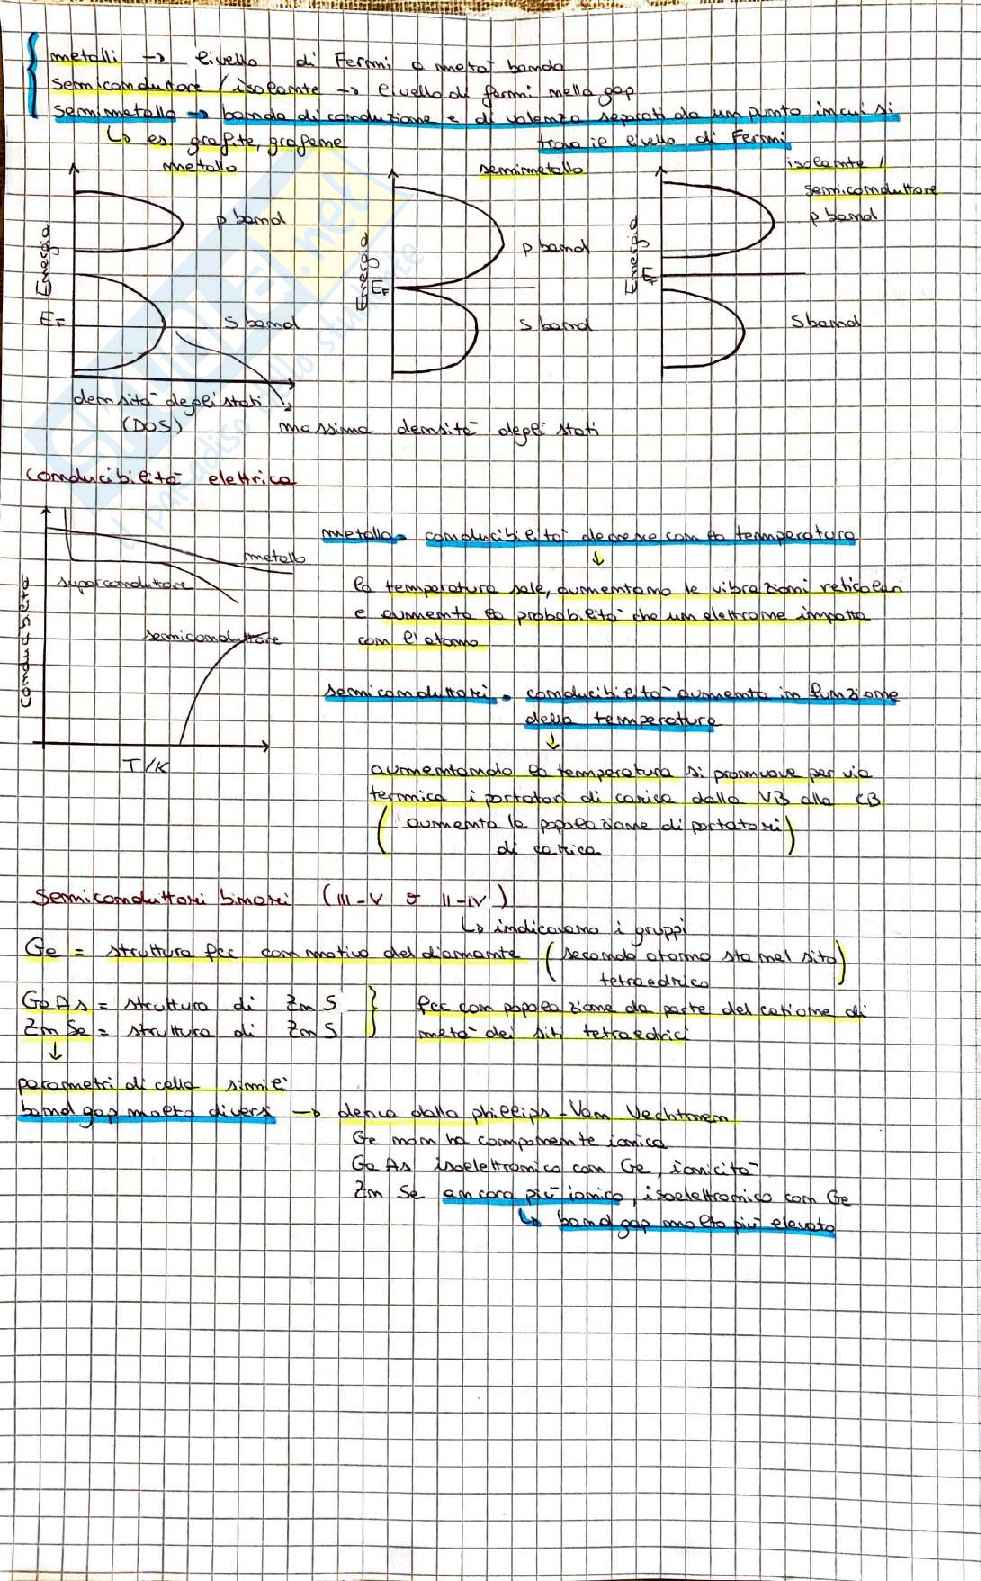 metalli → livello di Fermi a metà banda
semiconduttore / isolante → livello di fermi nella gap
semimetallo → banda di conduzione e di valenza separati da un punto in cui si
trova il livello di Fermi
↳ es grafite, grafeme
metallo
semimetallo
isolante /
semiconduttore
p band
p band
p band
Energia
Energia
Energia
EF
EF
EF
s band
s band
s band
densità degli stati
(DOS)
massima densità degli stati
conducibilità elettrica
metallo
superconduttore
semiconduttore
conducibilità
T/K
metallo • conducibilità decresce con la temperatura
↓
la temperatura sale, aumentano le vibrazioni reticolari
e aumenta la probabilità che un elettrone impatta
con l'atomo
semiconduttori • conducibilità aumenta in funzione
della temperatura
↓
aumentando la temperatura si promuove per via
termica i portatori di carica dalla VB alla CB
(aumenta la popolazione di portatori)
di carica
Semiconduttori binari (III-V e II-IV)
↳ indicavano i gruppi
Ge = struttura fcc con motivo del diamante (secondo atomo sta nel sito)
tetraedrico
GaAs = struttura di ZnS
ZnSe = struttura di ZnS
} fcc con popolazione da parte del catione di
metà dei siti tetraedrici
↓
parametri di cella simili
band gap molto diversi → deriva dalla phillips - Van Vechtmem
Ge non ha componente ionica
GaAs isoelettronico con Ge, ionicità
ZnSe ancora più ionico, isoelettronico con Ge
↳ band gap molto più elevato